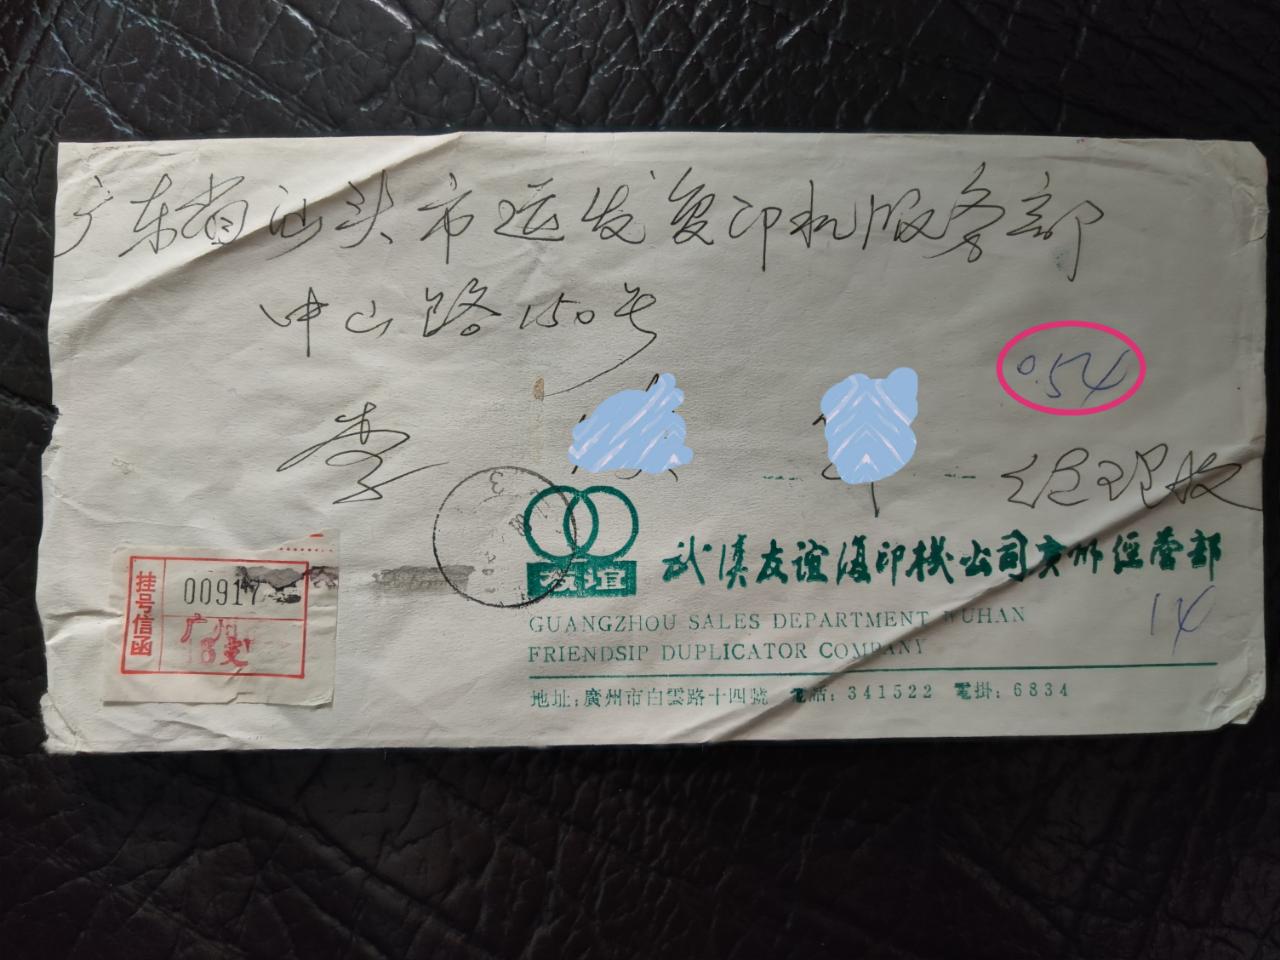 广东省汕头市运发复印机服务部
中山路150号
0.54
李
经理收
挂号信函
00917
广州
友谊
武漢友誼復印機公司廣州經營部
GUANGZHOU SALES DEPARTMENT WUHAN
14
FRIENDSIP DUPLICATOR COMPANY
地址:廣州市白雲路十四號 電話:341522 電掛:6834